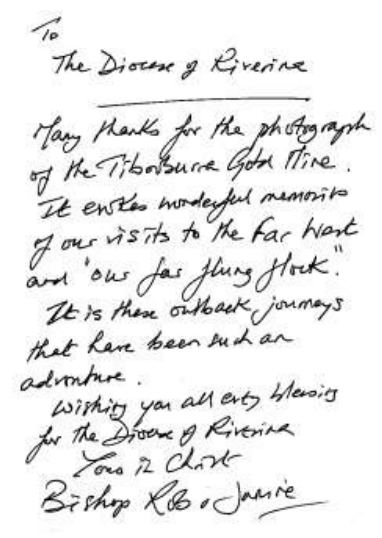 To
The Diocese of Riverina
Many thanks for the photograph
of the Tibooburra Gold Mine.
It evokes wonderful memories
of our visits to the Far West
and "our far flung flock."
It is these outback journeys
that have been such an
adventure.
Wishing you all every blessing
for the Diocese of Riverina
Yours in Christ
Bishop Rob & Janine